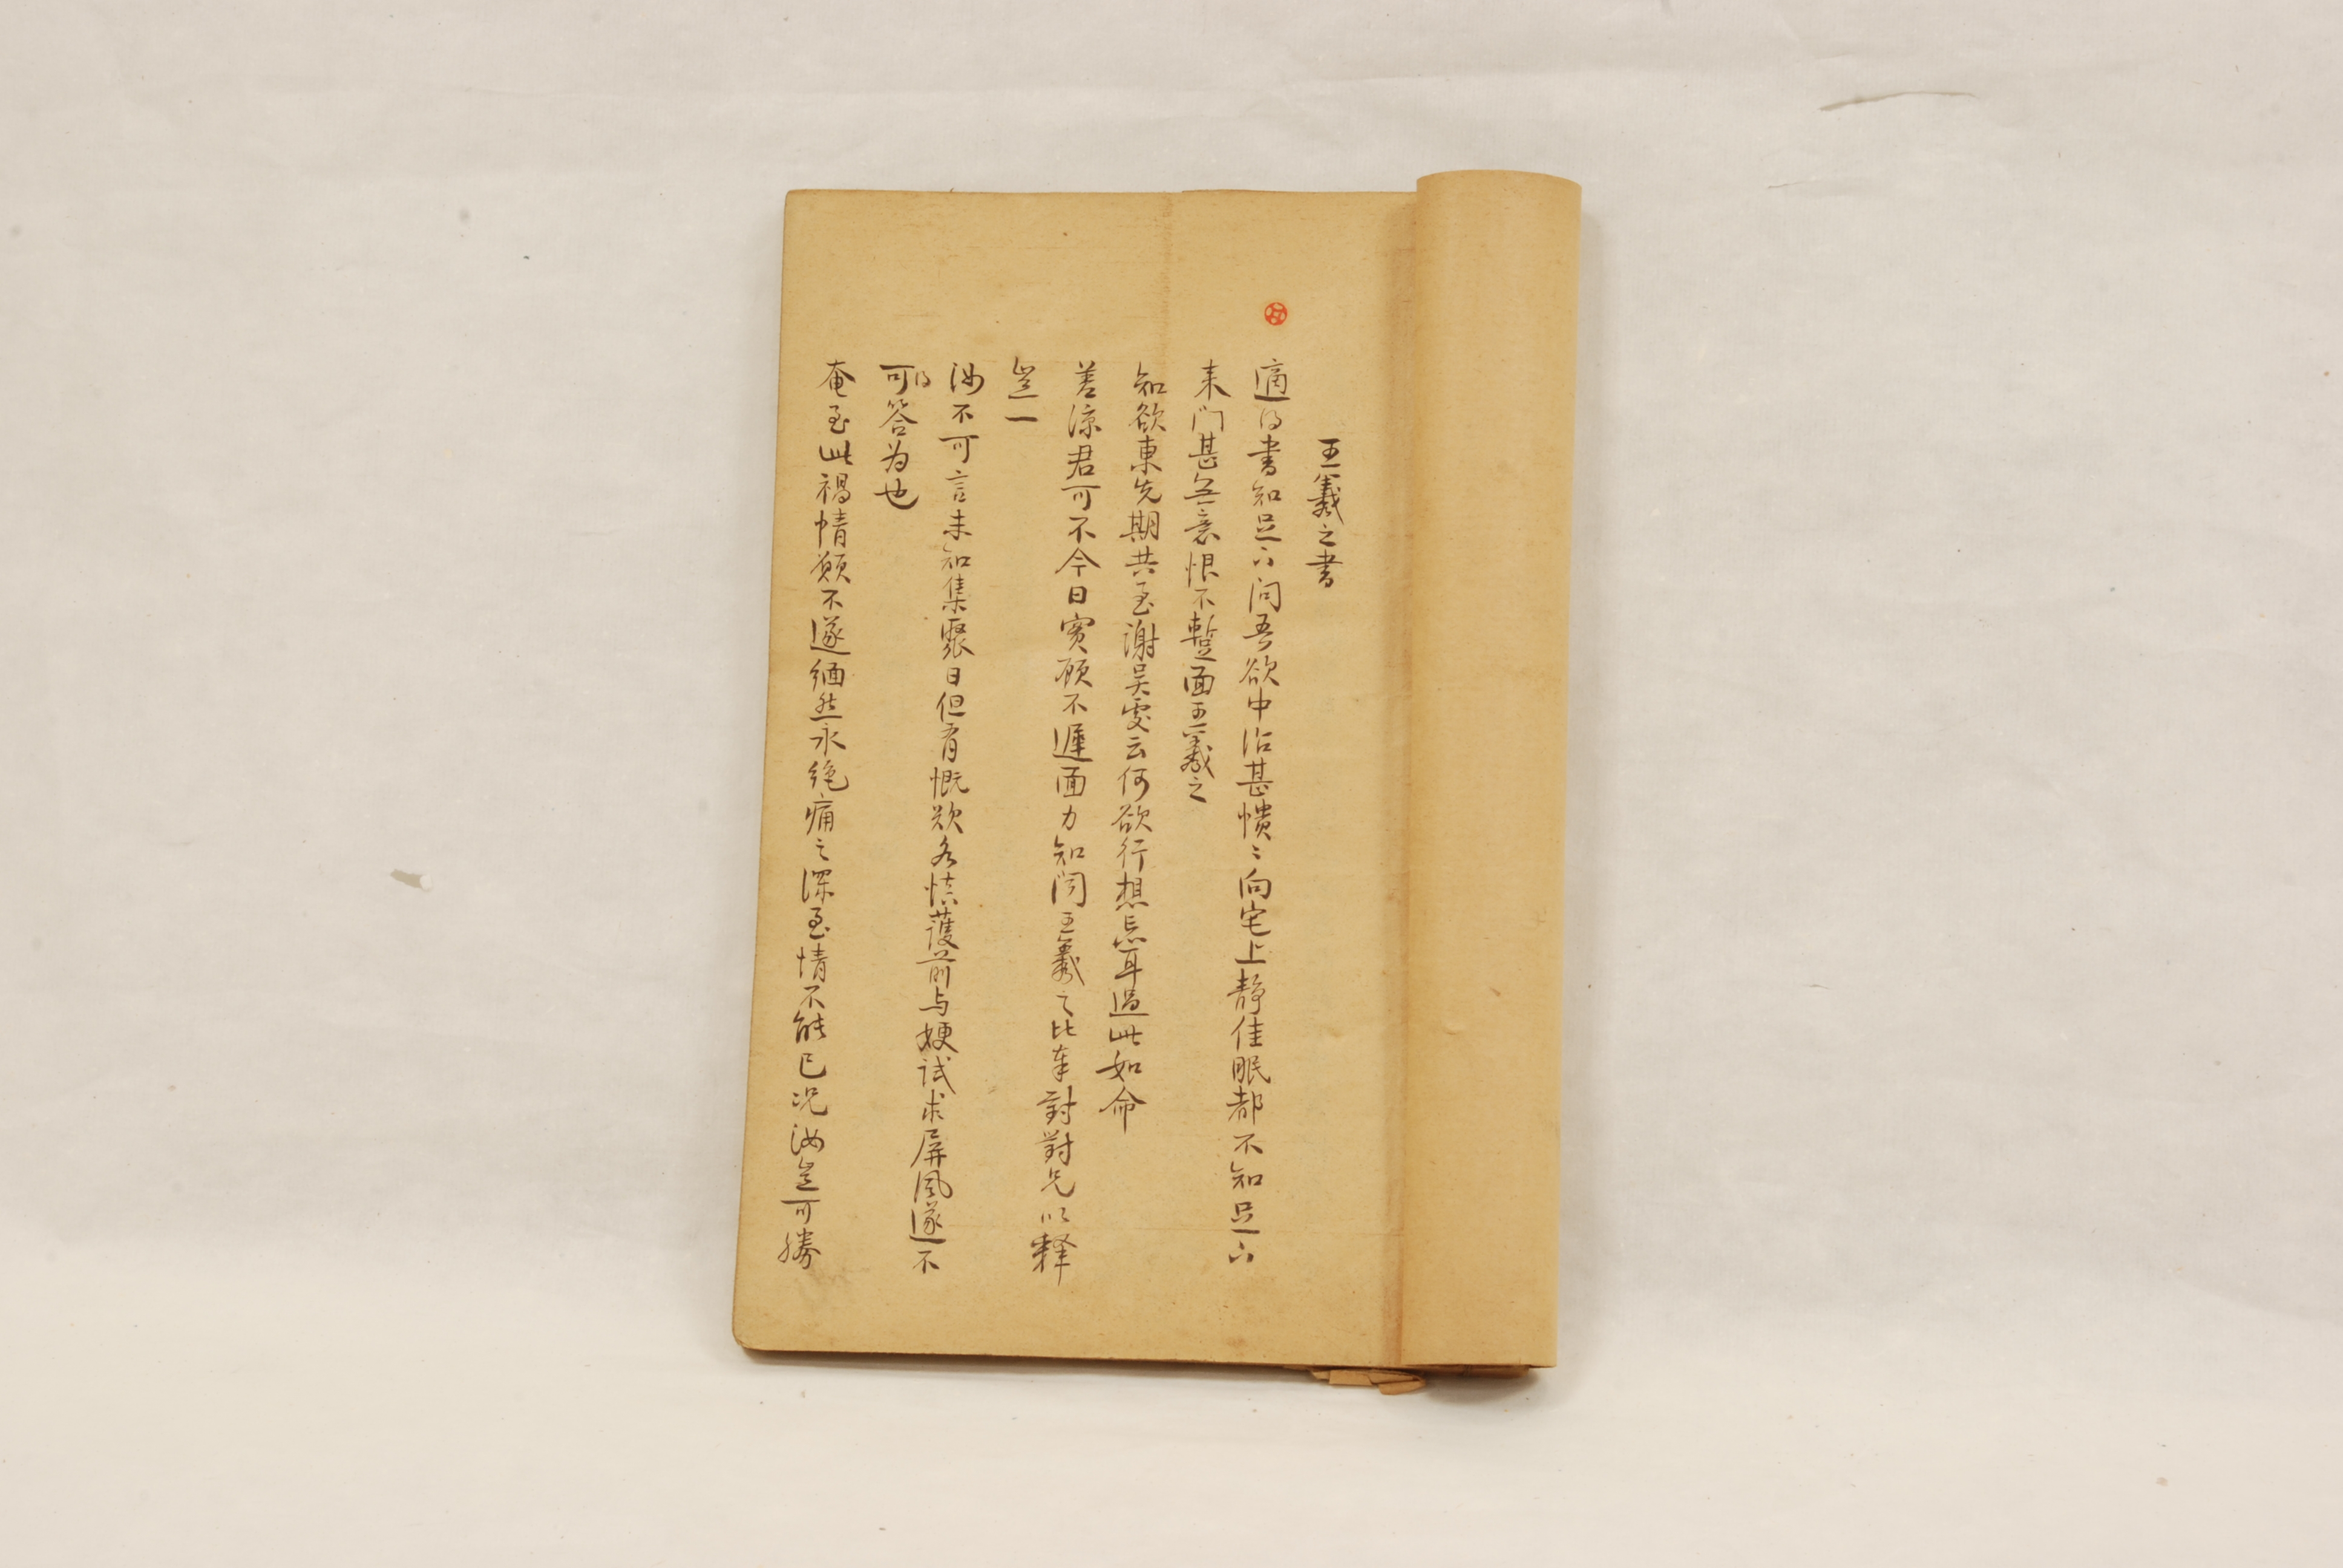 王羲之書
適得書知足下問吾欲中冷甚憒〻向宅上静佳眠都不知足下
来門甚無意恨不暫面王羲之
知欲東先期共至謝吴處云何欲行想忘耳過此如命
差涼君可不今日實顧不遲面力知問王羲之比奉對對兄以釋
豈一
汝不可言未知集聚日但有慨歎各慎護前与嫂試求屏風遂不
可得答為也
奄至此禍情願不遂緬然永絶痛之深至情不能已况汝豈可勝